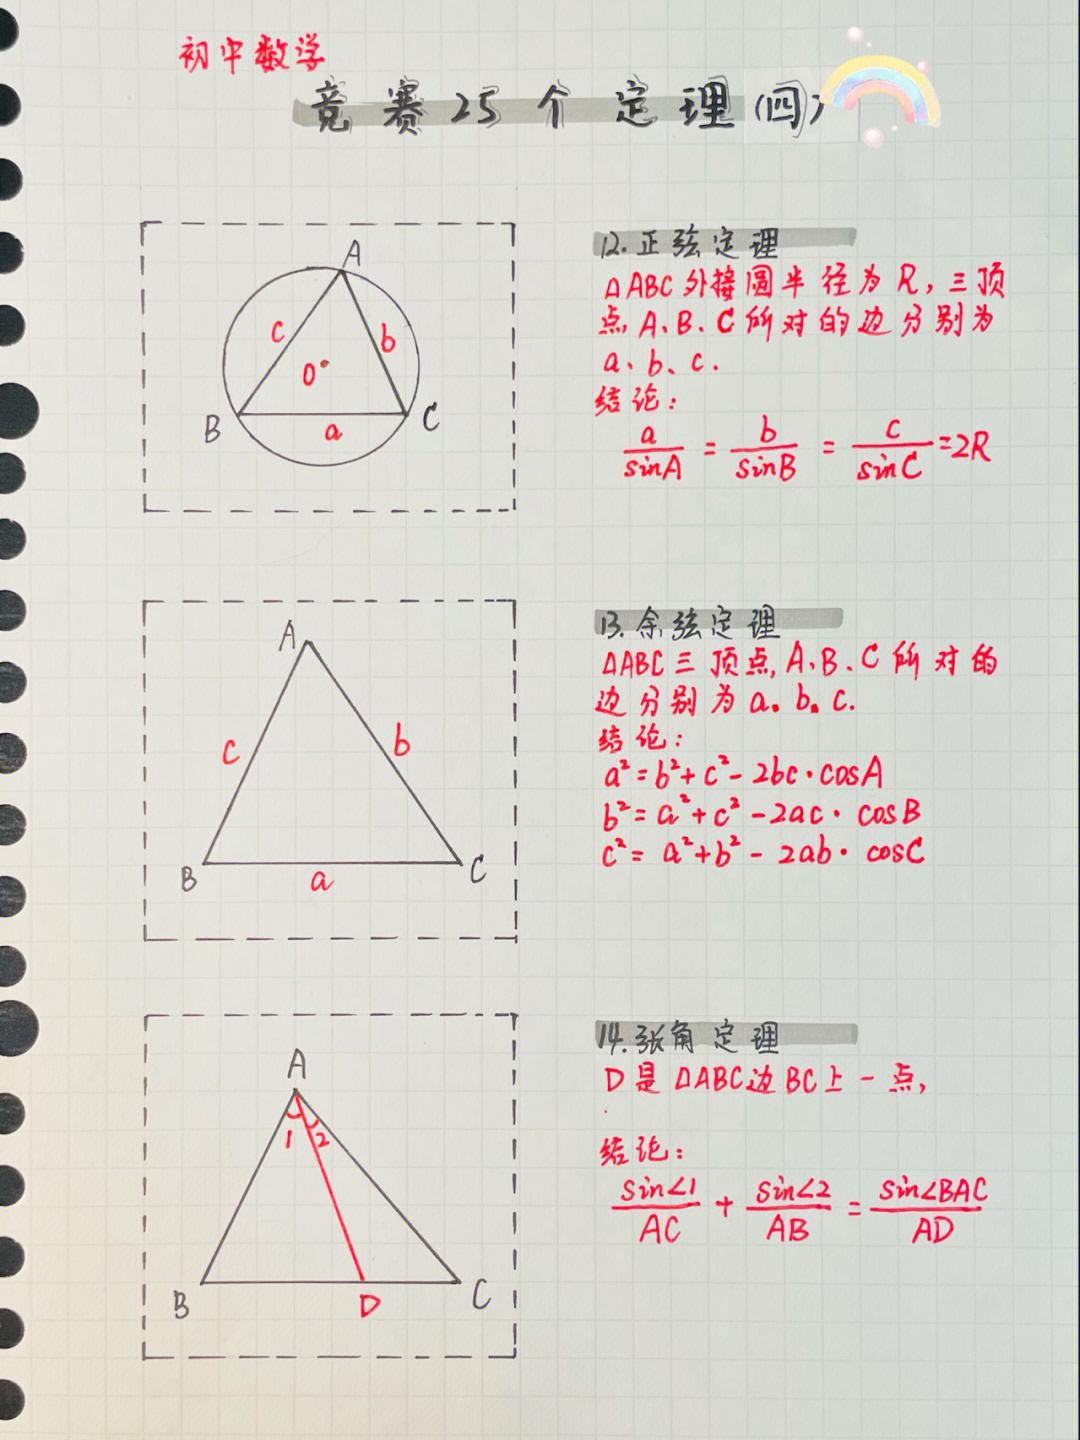 初中数学
竞赛25个定理(四)
A
c
b
O
B
a
C
12.正弦定理
△ABC外接圆半径为R,三顶
点A、B、C所对的边分别为
a、b、c.
结论:
a/sinA = b/sinB = c/sinC =2R
A
c
b
B
a
C
13.余弦定理
△ABC三顶点,A、B、C所对的
边分别为a、b、c.
结论:
a²=b²+c²-2bc·cosA
b²=a²+c²-2ac·cosB
c²=a²+b²-2ab·cosC
A
1 2
B
D
C
14.张角定理
D是△ABC边BC上一点,
结论:
sin∠1/AC + sin∠2/AB = sin∠BAC/AD